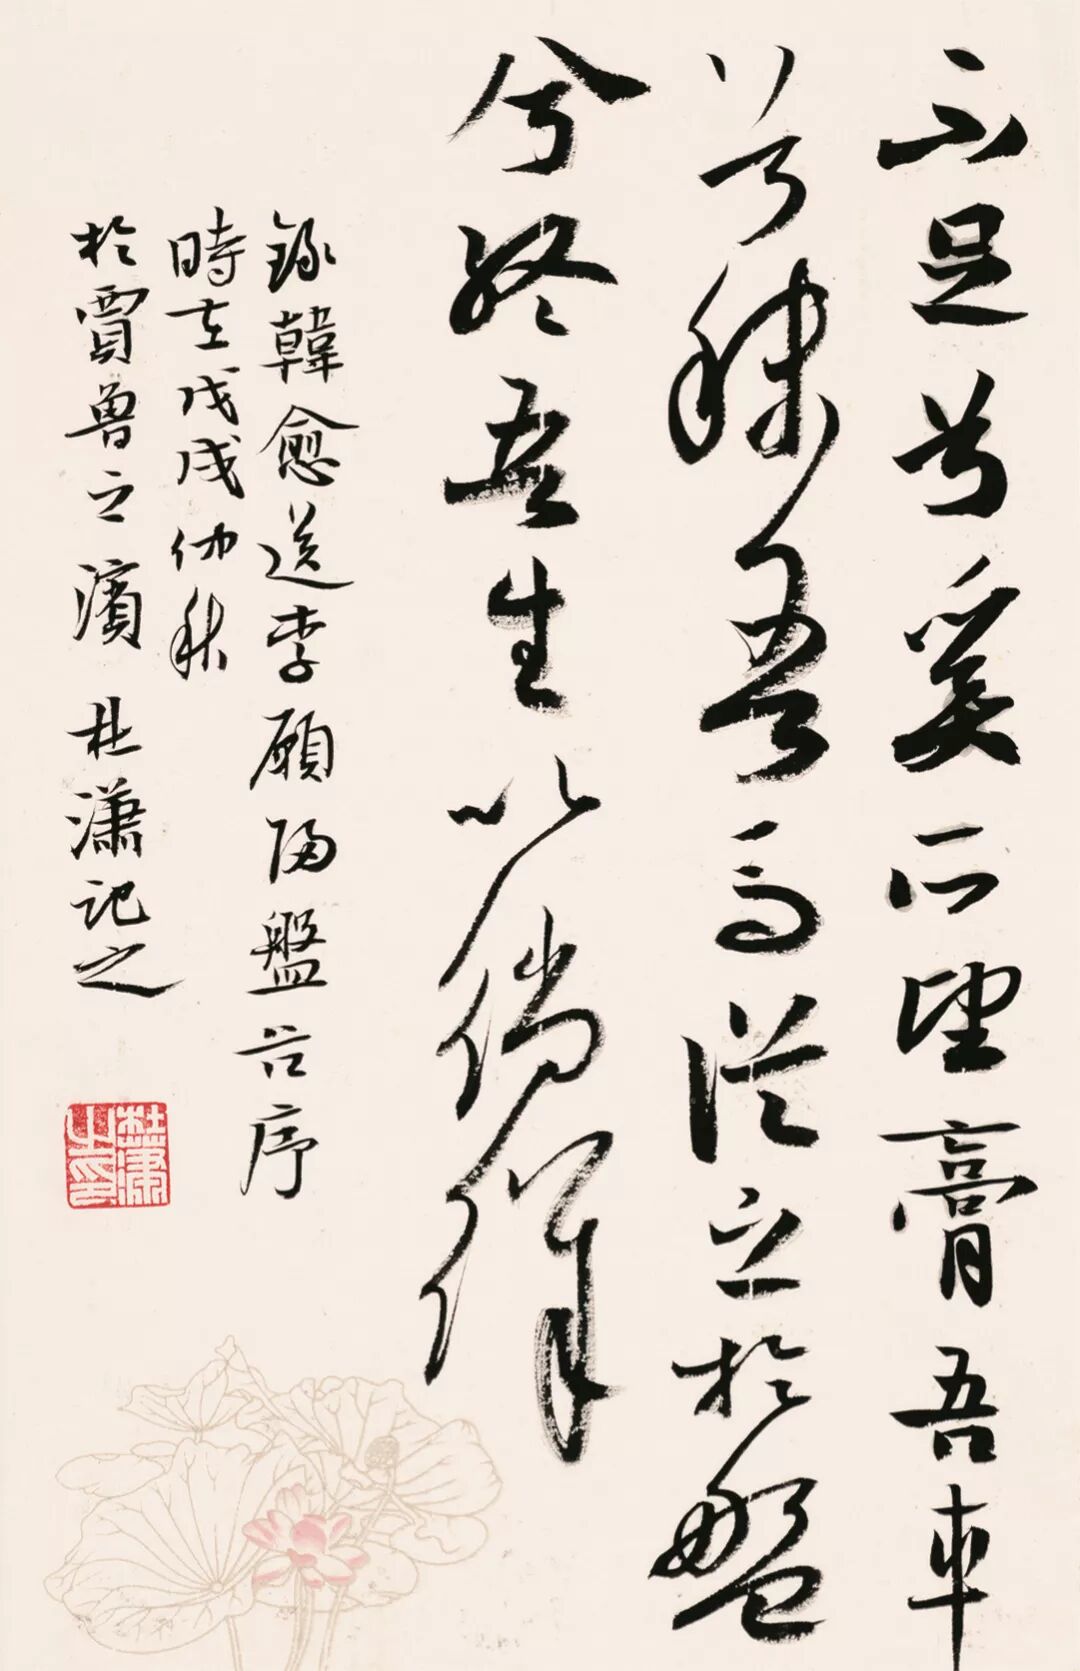 不足兮奚所望膏吾車
兮秣吾馬從子於盤
兮終吾生以徜徉
錄韓愈送李願歸盤谷序
時在戊戌仲秋
於賈魯之濱 杜瀟記之
杜瀟之印